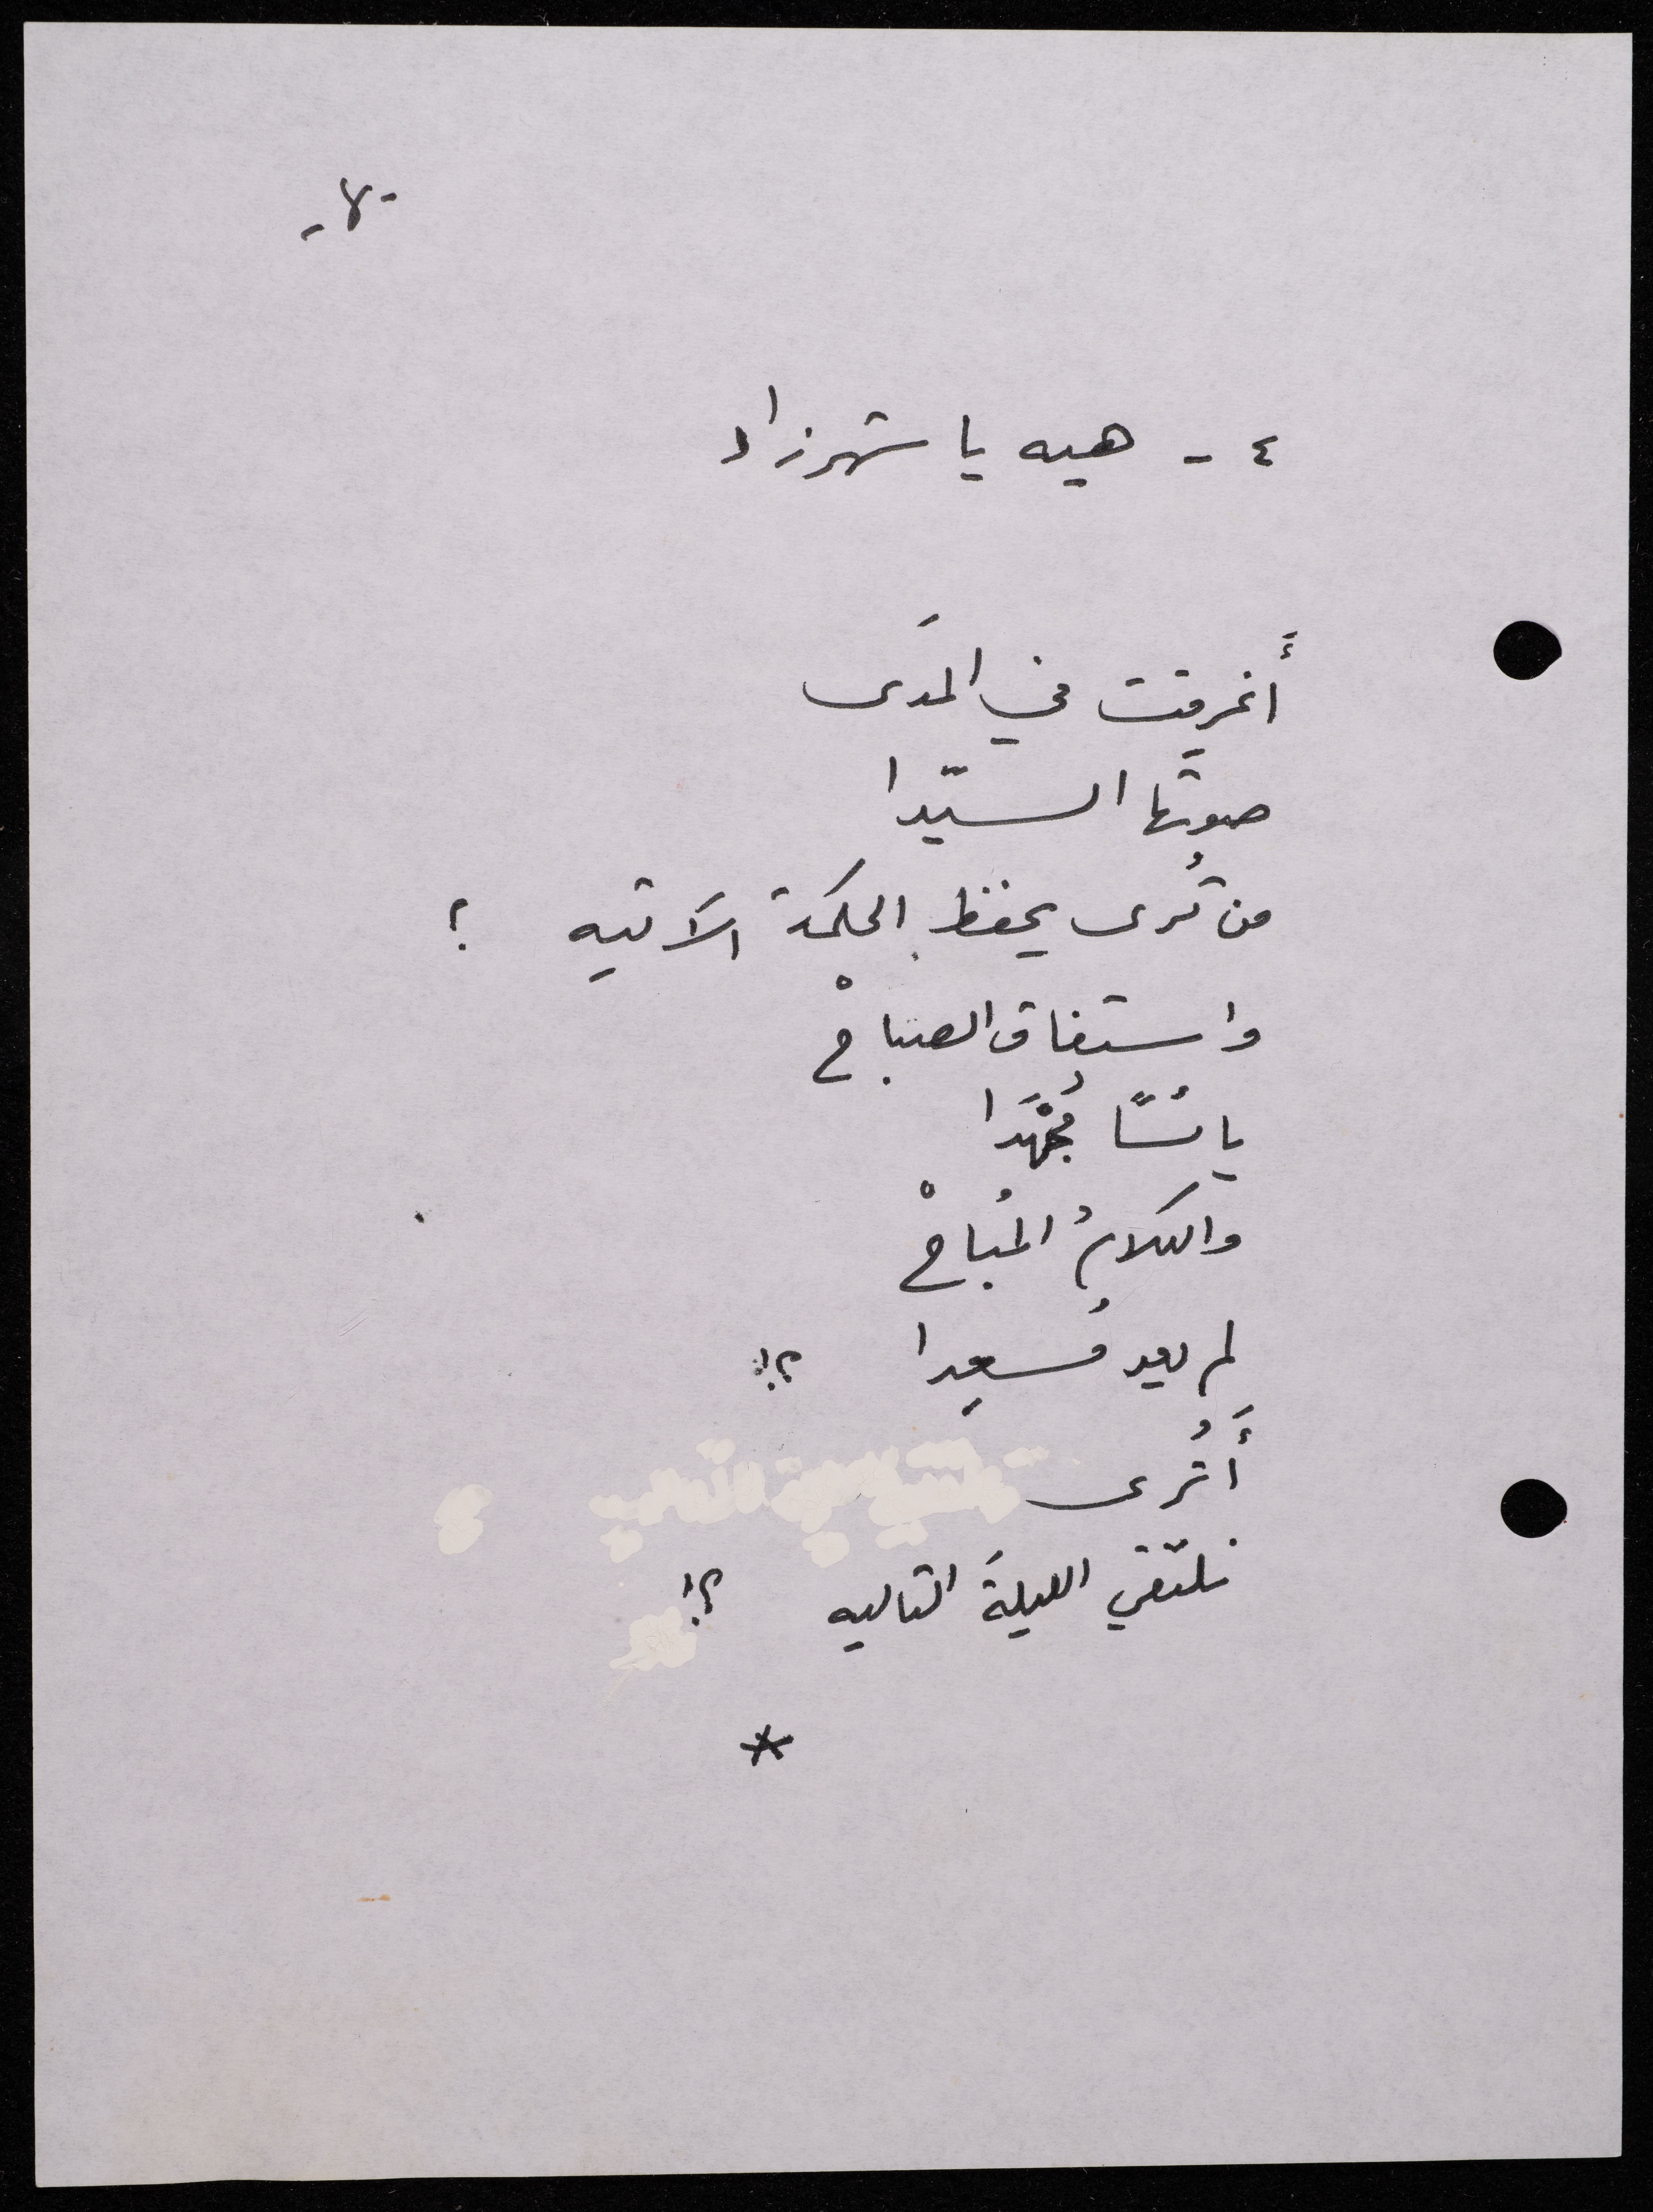 -٨-
٤ - هيه يا شهرزاد
أَغرقت في المَدَى
صوتَها السيّدا
من تُرى يحفظ الحكمة الآتيه ؟
واستفاق الصباحْ
يائسًا مُجْهَدا
والكلامُ المُباحْ
لم يعد مُسعِدا ؟!
أَتُرى
نلتقي الليلةَ التاليه ؟!
*